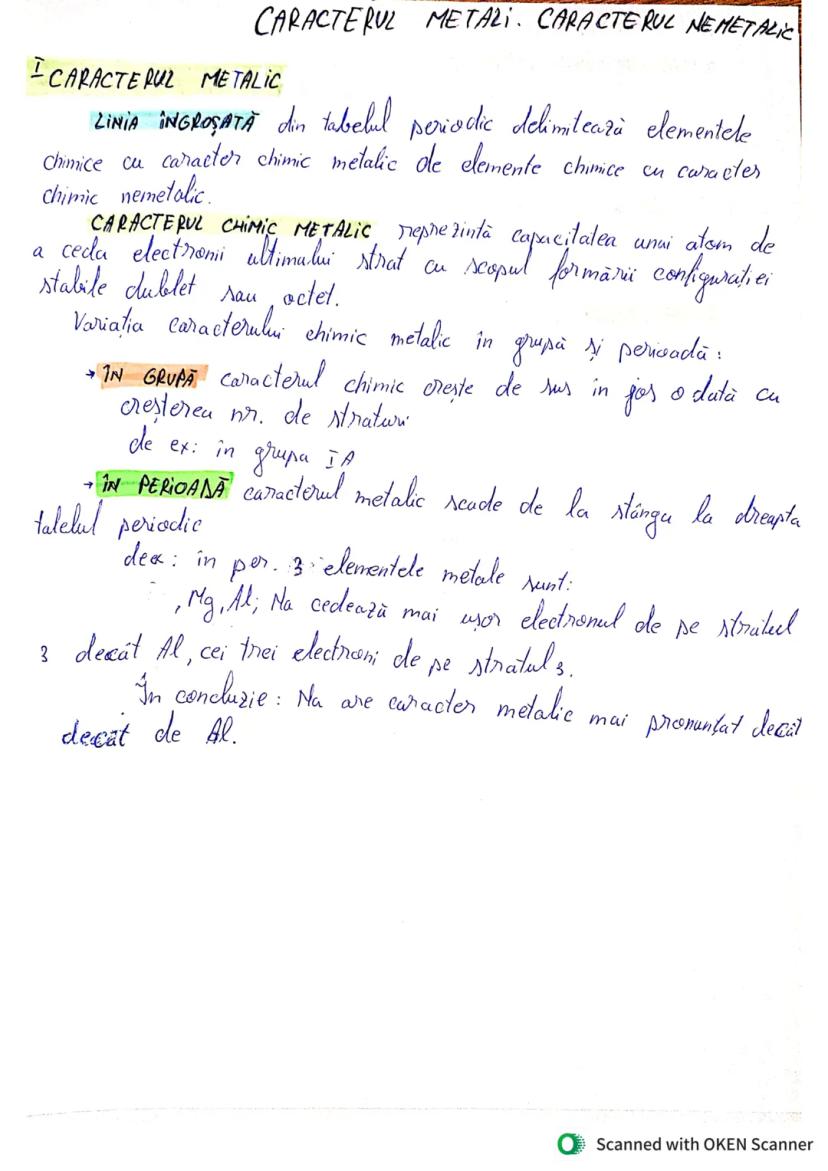 CARACTERUL METALI. CARACTERUL NEMETALIC
I CARACTERUL METALIC
LINIA ÎNGROȘATĂ din tabelul periodic delimitează elementele
chimice cu caracter chimic metalic de elemente chimice cu caracter
chimic nemetalic.
CARACTERUL CHIMIC METALIC reprezintă capacitatea unui atom de
a ceda electronii ultimului strat cu scopul formării configurației
stabile dublet sau octet.
Variația caracterului chimic metalic în grupă și perioadă:
→ ÎN GRUPĂ caracterul chimic crește de sus în jos o dată cu
creșterea nr. de straturi
de ex: în grupa IA
→ ÎN PERIOADĂ caracterul metalic scade de la stânga la dreapta
talelul periodic
dex: în per. 3 elementele metale sunt:
, Mg, Al; Na cedează mai ușor electronul de pe stratul
3 decât Al, cei trei electroni de pe stratul 3.
În concluzie: Na are caracter metalic mai pronunțat decât
decât de Al.
Scanned with OKEN Scanner